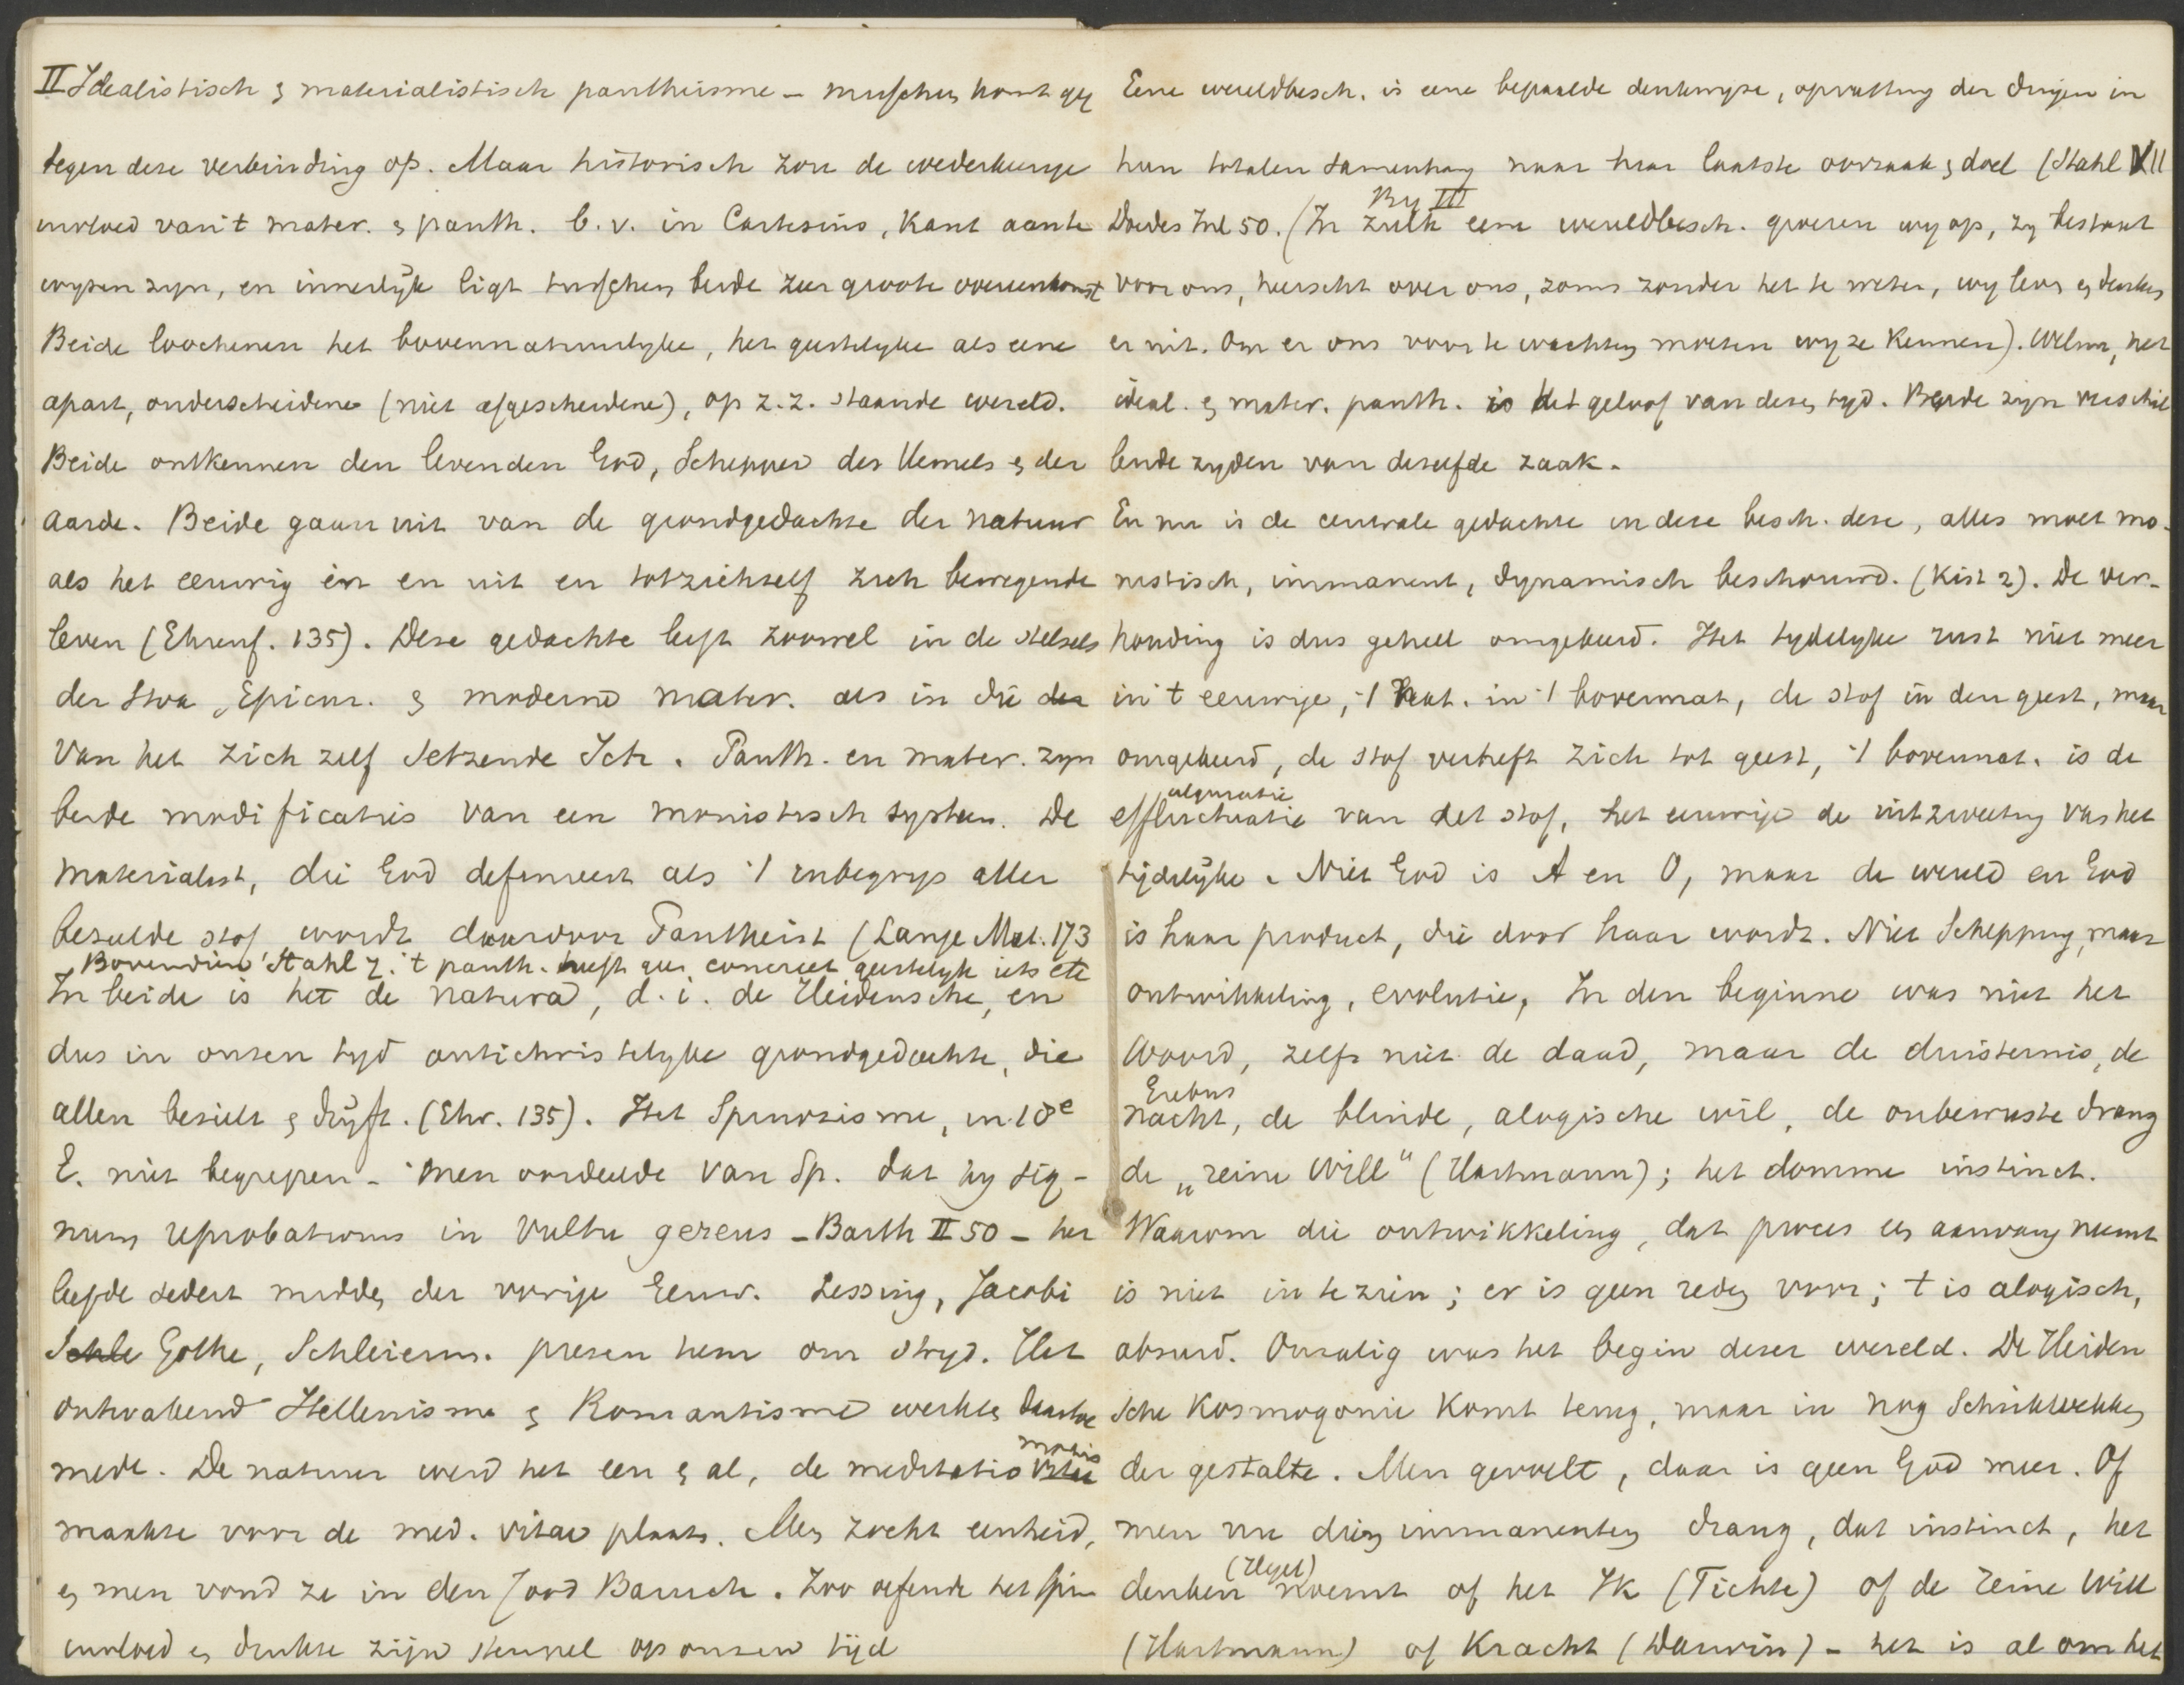 II Idealistisch & materialistisch pantheisme - misschien komt gij
tegen deze verbinding op. Maar historisch zou de wederkeerige
invloed van 't mater. & panth. b.v. in Cartesius, Kant aan te
wyzen zyn, en innerlijk ligt tusschen beide zeer groote overeenkomst
Beide loochenen het bovennatuurlyke, het geestelyke als eene
apart, onderscheidene (niet afgescheidene), op z.z. staande wereld.
Beide ontkennen den levenden God, Schepper des Hemels & der
aarde. Beide gaan uit van de grondgedachte der natuur
als het eeuwig in en uit en tot zichzelf zich bewegende
leven (Ehrenf. 135). Deze gedachte leeft zoowel in de stelsels
der Stoa, Epicur. & moderne mater. als in die der
van het zich zelf setzende Ich. Panth. en mater. zyn
beide modificaties van een monistisch systeem. De
materialist, die God definieert als 't inbegryp aller
bezielde stof wordt daardoor Pantheist (Lange Mat. 173
Bovendien Stahl z: 't panth. heeft geen concreet geestelyk iets etc
In beide is het de natura, d.i. de Heidensche, en
dus in onzen tyd antichristelyke grondgedachte, die
allen bezielt & drijft. (Ehr. 135). Het Spinozisme, in 18e
E. niet begrepen - men oordeelde van Sp. dat hy sig-
num reprobationis in vultu gerens - Barth II 50 - her
leefde sedert midden der vorige Eeuw. Lessing, Jacobi
Schle Göthe, Schleierm. prezen hem om stryd. Het
ontwakend Hellenisme & Romantisme werkten daartoe
mede. De natuur werd het een & al, de meditatio mortis vitae
maakte voor de med. vitae plaats. Men zocht eenheid,
en men vond ze in den Jood Baruch. Zoo oefende het Spin
invloed en drukte zijn stempel op onzen tijd
Eene wereldbesch. is eene bepaalde denkwyze, opvatting der dingen in
hun totalen samenhang naar haar laatste oorzaak & doel (Stahl XII
Doedes Inl 50. (In zulk eene wereldbesch. groeien wy op, zy bestaat
By III
voor ons, heerscht over ons, soms zonder het te weten, wy leven en denken
er uit. Om er ons voor te wachten moeten wy ze kennen). Welnu, het
ideal. & mater. panth. is het geloof van dezen tyd. Beide zyn verschil
lende zyden van dezelfde zaak.
En nu is de centrale gedachte in deze besch. deze, alles moet mo-
nistisch, immanent, dynamisch beschouwd. (Kist 2). De ver-
houding is dus geheel omgekeerd. Het tydelyke rust niet meer
in 't eeuwige, 't nat. in 't bovennat, de stof in den geest, maar
omgekeerd, de stof verheft zich tot geest, 't bovennat. is de
effluctuatie van det stof, het eeuwige de uitzweeting van het
tijdelijke. Niet God is A en O, maar de wereld en God
is haar product, die door haar wordt. Niet Schepping, maar
ontwikkeling, evolutie, In den beginne was niet het
Woord, zelfs niet de daad, maar de duisternis, de
Erebus
nacht, de blinde, alogische wil, de onbewuste drang
de „reine Will" (Hartmann); het domme instinct.
Waarom die ontwikkeling, dat proces een aanvang neemt
is niet in te zien; er is geen reden voor; 't is alogisch,
absurd. Onzalig was het begin dezer wereld. De Heiden
sche Kosmogonie komt terug, maar in nog schrikwekken
der gestalte. Men gevoelt, daar is geen God meer. Of
men nu dien immanenten drang, dat instinct, het
denken (Hegel) noemt of het Ik (Fichte) of de reine Will
(Hartmann) of Kracht (Darwin) - het is al om het